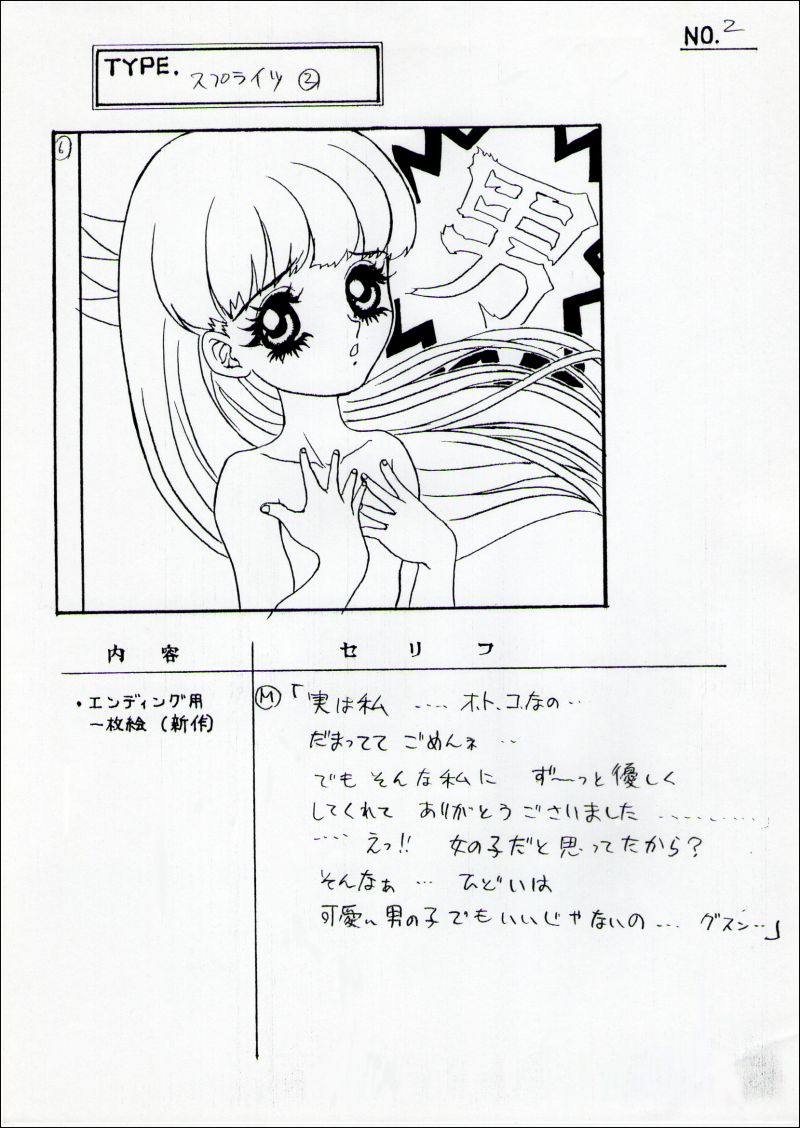 NO. 2
TYPE. スプライツ ②
6
男
内容
セリフ
・エンディング用
一枚絵（新作）
Ⓜ「実は私 ‥‥ オトコなの‥
だまってて ごめんネ ‥
でも そんな私に ず〜っと優しく
してくれて ありがとうございました ‥‥‥‥‥
‥‥ えっ!! 女の子だと思ってたから？
そんなぁ ‥ ひどいは
可愛い男の子でもいいじゃないの ‥‥ グスン‥」